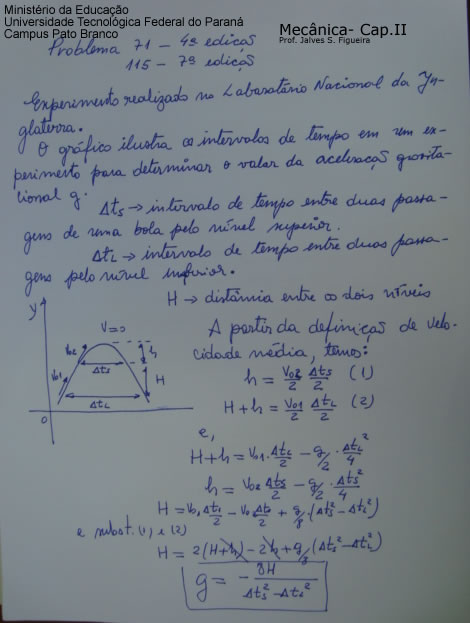 Ministério da Educação
Universidade Tecnológica Federal do Paraná
Campus Pato Branco
Mecânica- Cap.II
Prof. Jalves S. Figueira
Problema 71 - 4ª edição
115 - 7ª edição
Experimento realizado no Laboratório Nacional da In-
glaterra.
O gráfico ilustra os intervalos de tempo em um ex-
perimento para determinar o valor da aceleração gravita-
cional g.
Δts → intervalo de tempo entre duas passa-
gens de uma bola pelo nível superior.
ΔtL → intervalo de tempo entre duas passa-
gens pelo nível inferior.
H → distância entre os dois níveis
A partir da definição de velo-
cidade média, temos:
y
V=0
V02
h
Δts
V01
H
ΔtL
0
h = V02/2 Δts/2 (1)
H + h = V01/2 ΔtL/2 (2)
e,
H+h = V01.ΔtL/2 - g/2.ΔtL²/4
h = V02 Δts/2 - g/2.Δts²/4
H = V01 ΔtL/2 - V02 Δts/2 + g/8.(Δts² - ΔtL²)
e subst. (1) e (2)
H = 2(H+h) - 2h + g/8(Δts² - ΔtL²)
g = - 8H/Δts² - ΔtL²